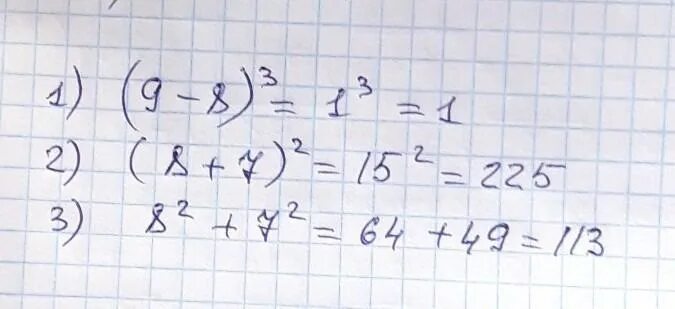 1) (9 - 8)³ = 1³ = 1
2) (8 + 7)² = 15² = 225
3) 8² + 7² = 64 + 49 = 113